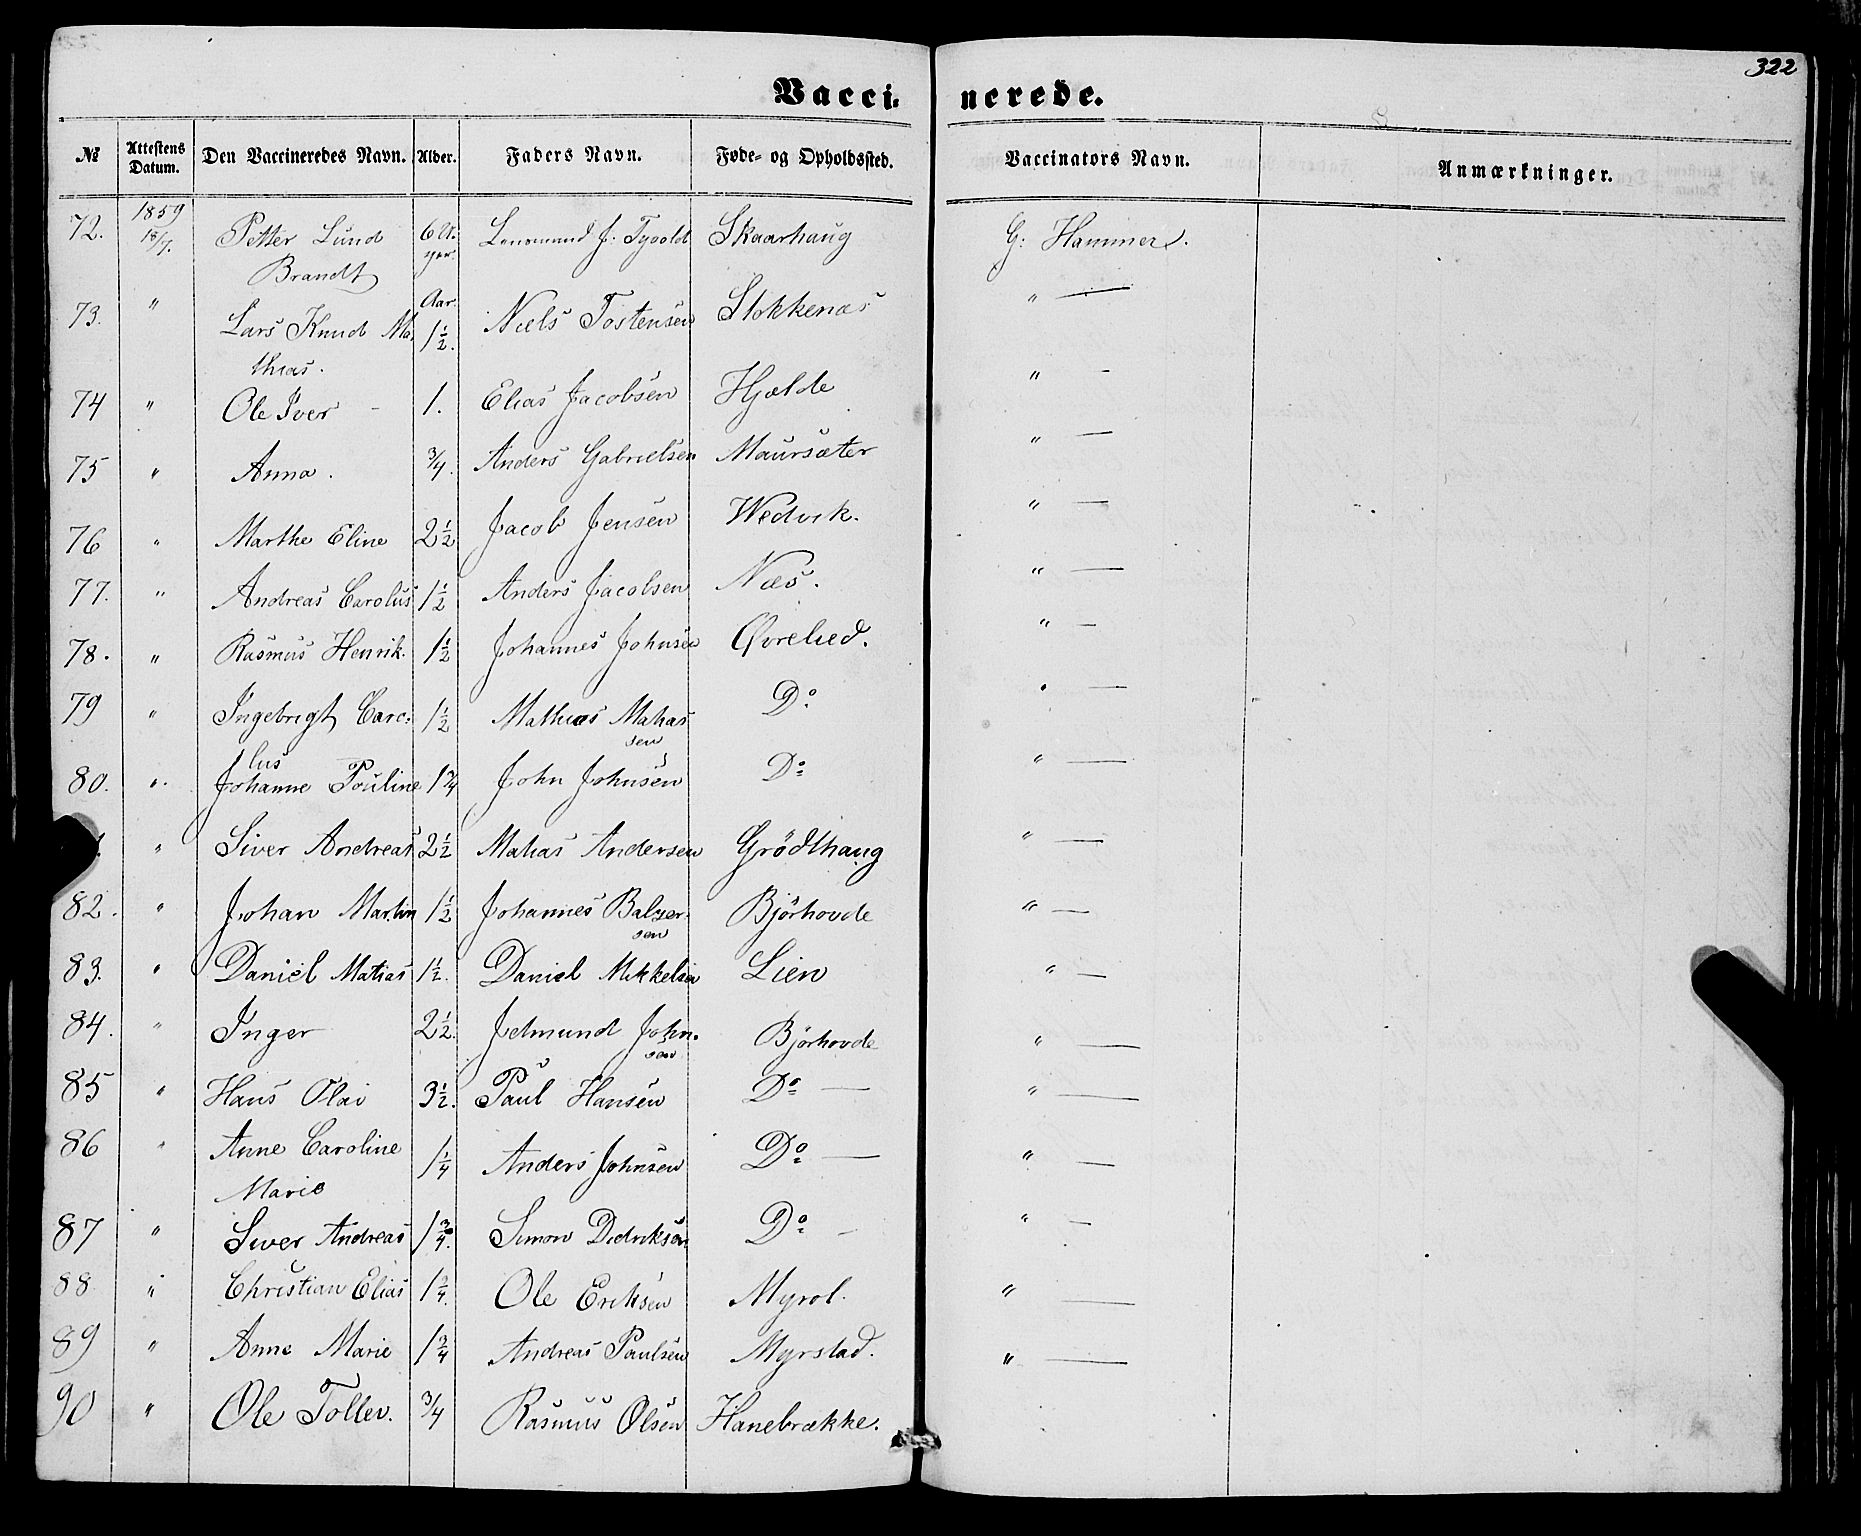 322
Vacci- nerede.
№ Attestens Datum. Den Vaccineredes Navn. Alder. Faders Navn. Føde- og Opholdssted. Vaccinators Navn. Anmærkninger.
72. 1859 18/7. Petter Lund Brandt 6 Lensmand J: Skaarhaug G: Hammer.
73. " Lars Knud Ma- thias. Aar. 1½. Niels Tostensen Stokkenæs " —
74 " Ole Iver - 1. Elias Jacobsen Hjælde " -
75 " Anna. ¾. Anders Gabrielsen Maursæter " —
76 " Marthe Eline 2½ Jacob Jensen Wedvik. " —
77. " Andreas Carolus 1½ Anders Jacobsen Næs. " —
78. " Rasmus Henrik. 1½ Johannes Johnsen Øvrelied. " —
79 " Ingebrigt Caro- lus 1½ Mathias Matias sen Do " —
80. " Johanne Pouline 1¾ John Johnsen Do " —
" Siver Andreas 2½ Matias Andersen Grödthaug " —
82. " Johan Martin 1½ Johannes Balzer- sen Björhovde " —
83. " Daniel Matias 1½. Daniel Mikkelsen Lien " —
84. " Inger 2½. Jetmund John- sen Björhovde " —
85 " Hans Olai 3½. Paul Hansen Do — " —
86 " Anne Caroline Marie 1¼ Anders Johnsen Do — " —
87 " Siver Andreas 1¾. Simon Didriksen Do - " —
88 " Christian Elias 1¾. Ole Eriksen Myrol. " —
89 " Anne Marie 1¾ Andreas Paulsen Myrstad. " —
90 " Ole Tollev. ¾ Rasmus Olsen Hanebrække.